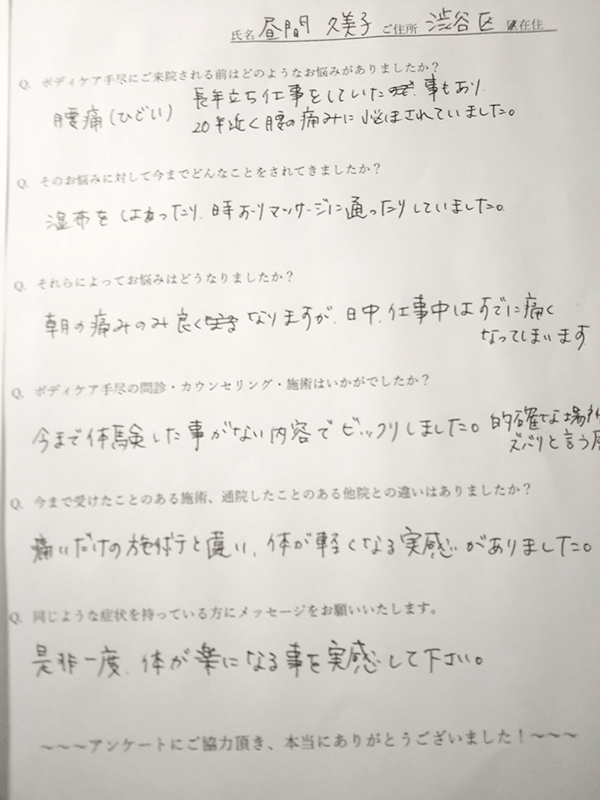 氏名 昼間 久美子 ご住所 渋谷区 在住
Q. ボディケア手尽にご来院される前はどのようなお悩みがありましたか？
腰痛(ひどい) 長年立ち仕事をしていた事もあり
20年近く腰の痛みに悩まされていました。
Q. そのお悩みに対して今までどんなことをされてきましたか？
湿布をはったり、時おりマッサージに通ったりしていました。
Q. それらによってお悩みはどうなりましたか？
朝の痛みのみ良くなりますが、日中、仕事中はすでに痛く
なってしまいます
Q. ボディケア手尽の問診・カウンセリング・施術はいかがでしたか？
今まで体験した事がない内容でビックリしました。的確な場所
ズバリと言う
Q. 今まで受けたことのある施術、通院したことのある他院との違いはありましたか？
痛いだけの施術と違い、体が軽くなる実感がありました。
Q. 同じような症状を持っている方にメッセージをお願いいたします。
是非一度、体が楽になる事を実感して下さい。
～～～アンケートにご協力頂き、本当にありがとうございました！～～～